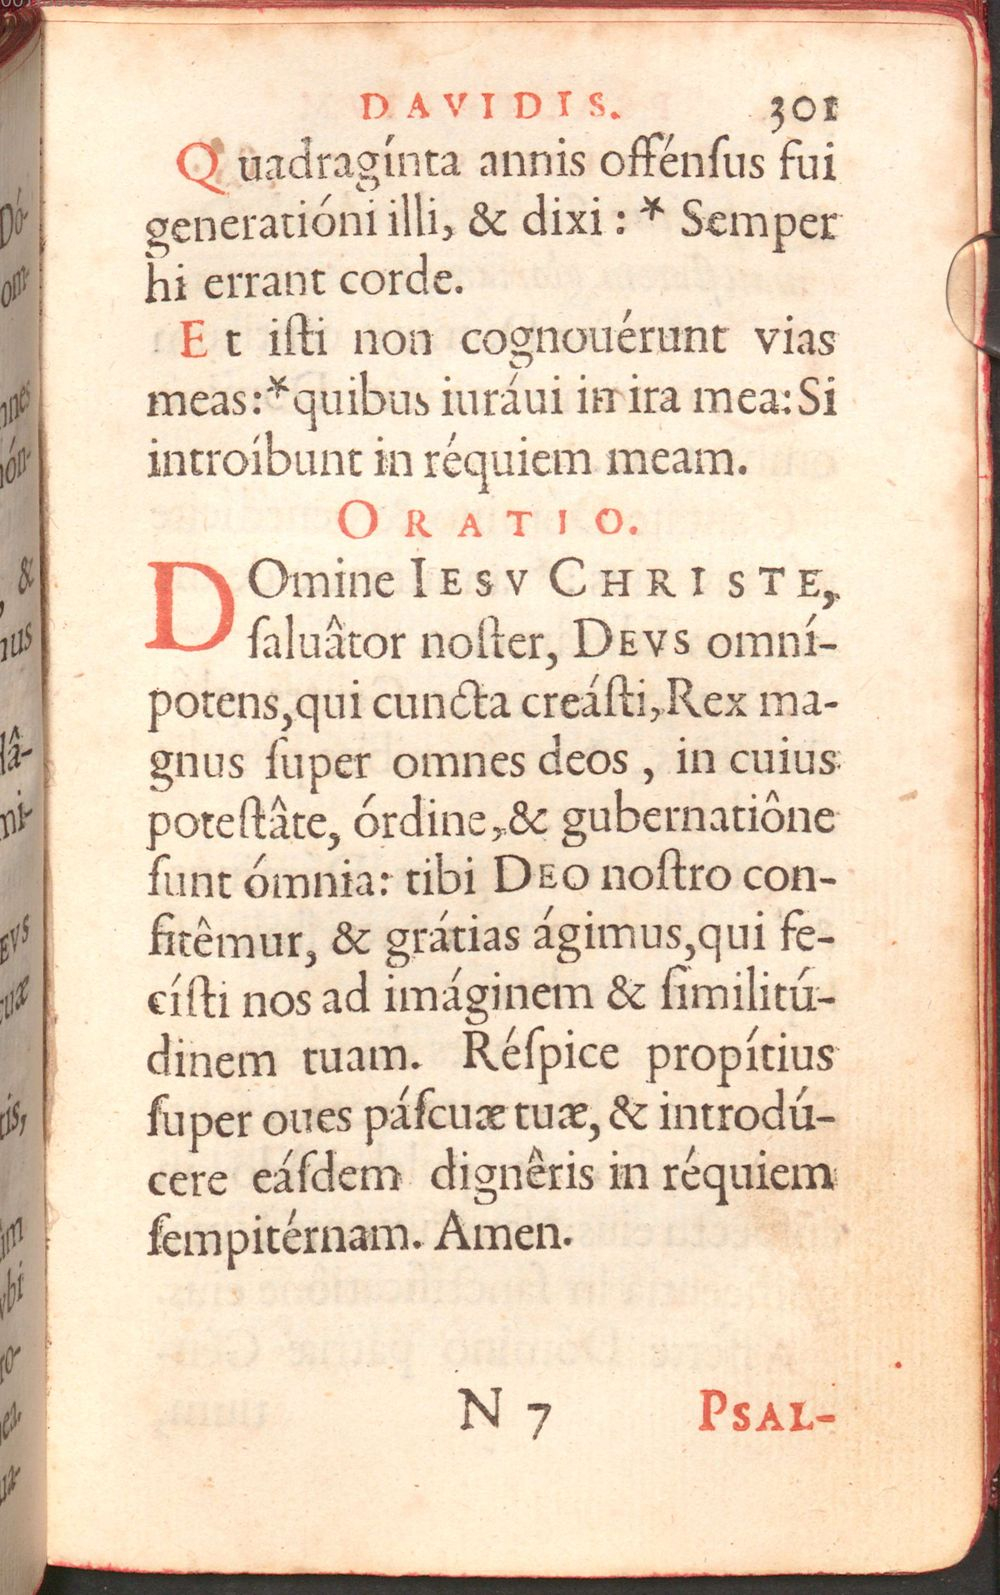 DAVIDIS. 301
Quadragínta annis offénſus fui
generatióni illi, & dixi : * Semper
hi errant corde.
Et iſti non cognouérunt vias
meas:*quibus iuráui in ira mea: Si
introíbunt in réquiem meam.
ORATIO.
DOmine IESV CHRISTE,
ſaluâtor noſter, DEVS omní-
potens,qui cuncta creáſti,Rex ma-
gnus ſuper omnes deos , in cuius
poteſtâte, órdine,& gubernatiône
ſunt ómnia: tibi DEO noſtro con-
fitêmur, & grátias ágimus,qui fe-
cíſti nos ad imáginem & ſimilitú-
dinem tuam. Réſpice propítius
ſuper oues páſcuæ tuæ, & introdú-
cere eáſdem dignêris in réquiem
ſempitérnam. Amen.
N 7 PSAL-